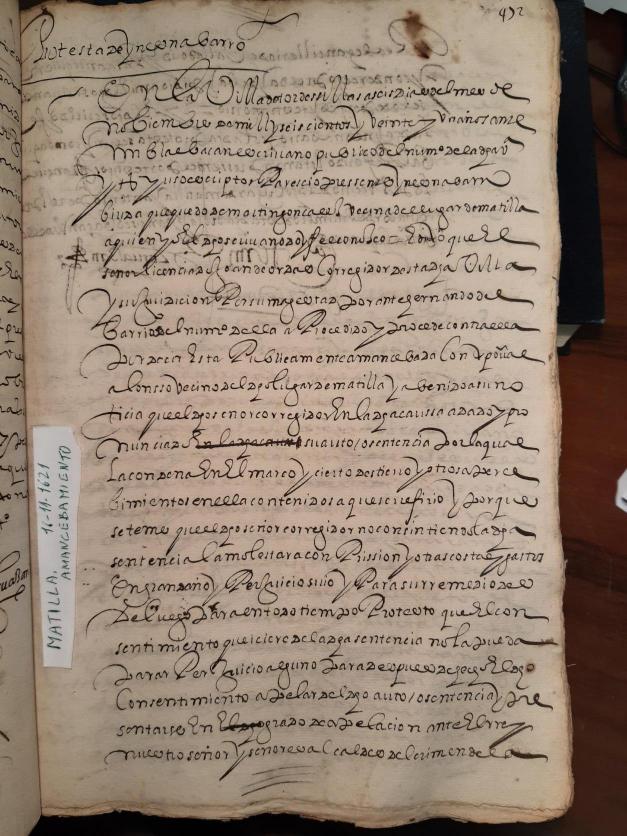 492
Protesta de ynes nabarro
En la Villa de tordessillas a seis dias del mes de
nobiembre de mill y seiscientos y veinte y un años ante
mi blas basan escrivano publico del numo de la dha vª
y tºs yuso escriptos Parescio presente ynes nabarro
biuda que quedo de mo tingonçalez vecina del lugar de matilla
a quien yo El dho scrivano doy ffe conosco = E dixo que El
señor licenciado Joan de cordova Corregidor desta dha Villa
y su Juridicion Persumagestad Por ante hernando del
Barrio del numo de ella a Procedido y procede contra ella
por decir Esta Publicamente amancebada Con xpoval
alonsso vecino del dho lugar de matilla y a benido a su no
ticia que el dho señor corregidor En la dha caussa a dado y pro
nunciado su auto / o sentencia Por la qual
La condena En El marco y cierto destierro y otros aperce
bimientos en ella contenidos a que se refirio y porque
se teme que el dho señor corregidor no consintiendo la dha
sentencia la molestara con Prission y otras costas y gastos
En gran daño y Perjuicio suio y Para su rremedio des
de luego para en todo tiempo Protesto que El con
sentimiento que iciere de la dha sentencia no la pueda
parar Perjuicio alguno para despues de El dho
Consentimiento apelar del dho auto / o sentencia y pre
sentarse En grado de apelacion ante El rrey
nuestro señor y señores alcaldes del crimen de la
MATILLA. 16-11-1621
AMANCEBAMIENTO